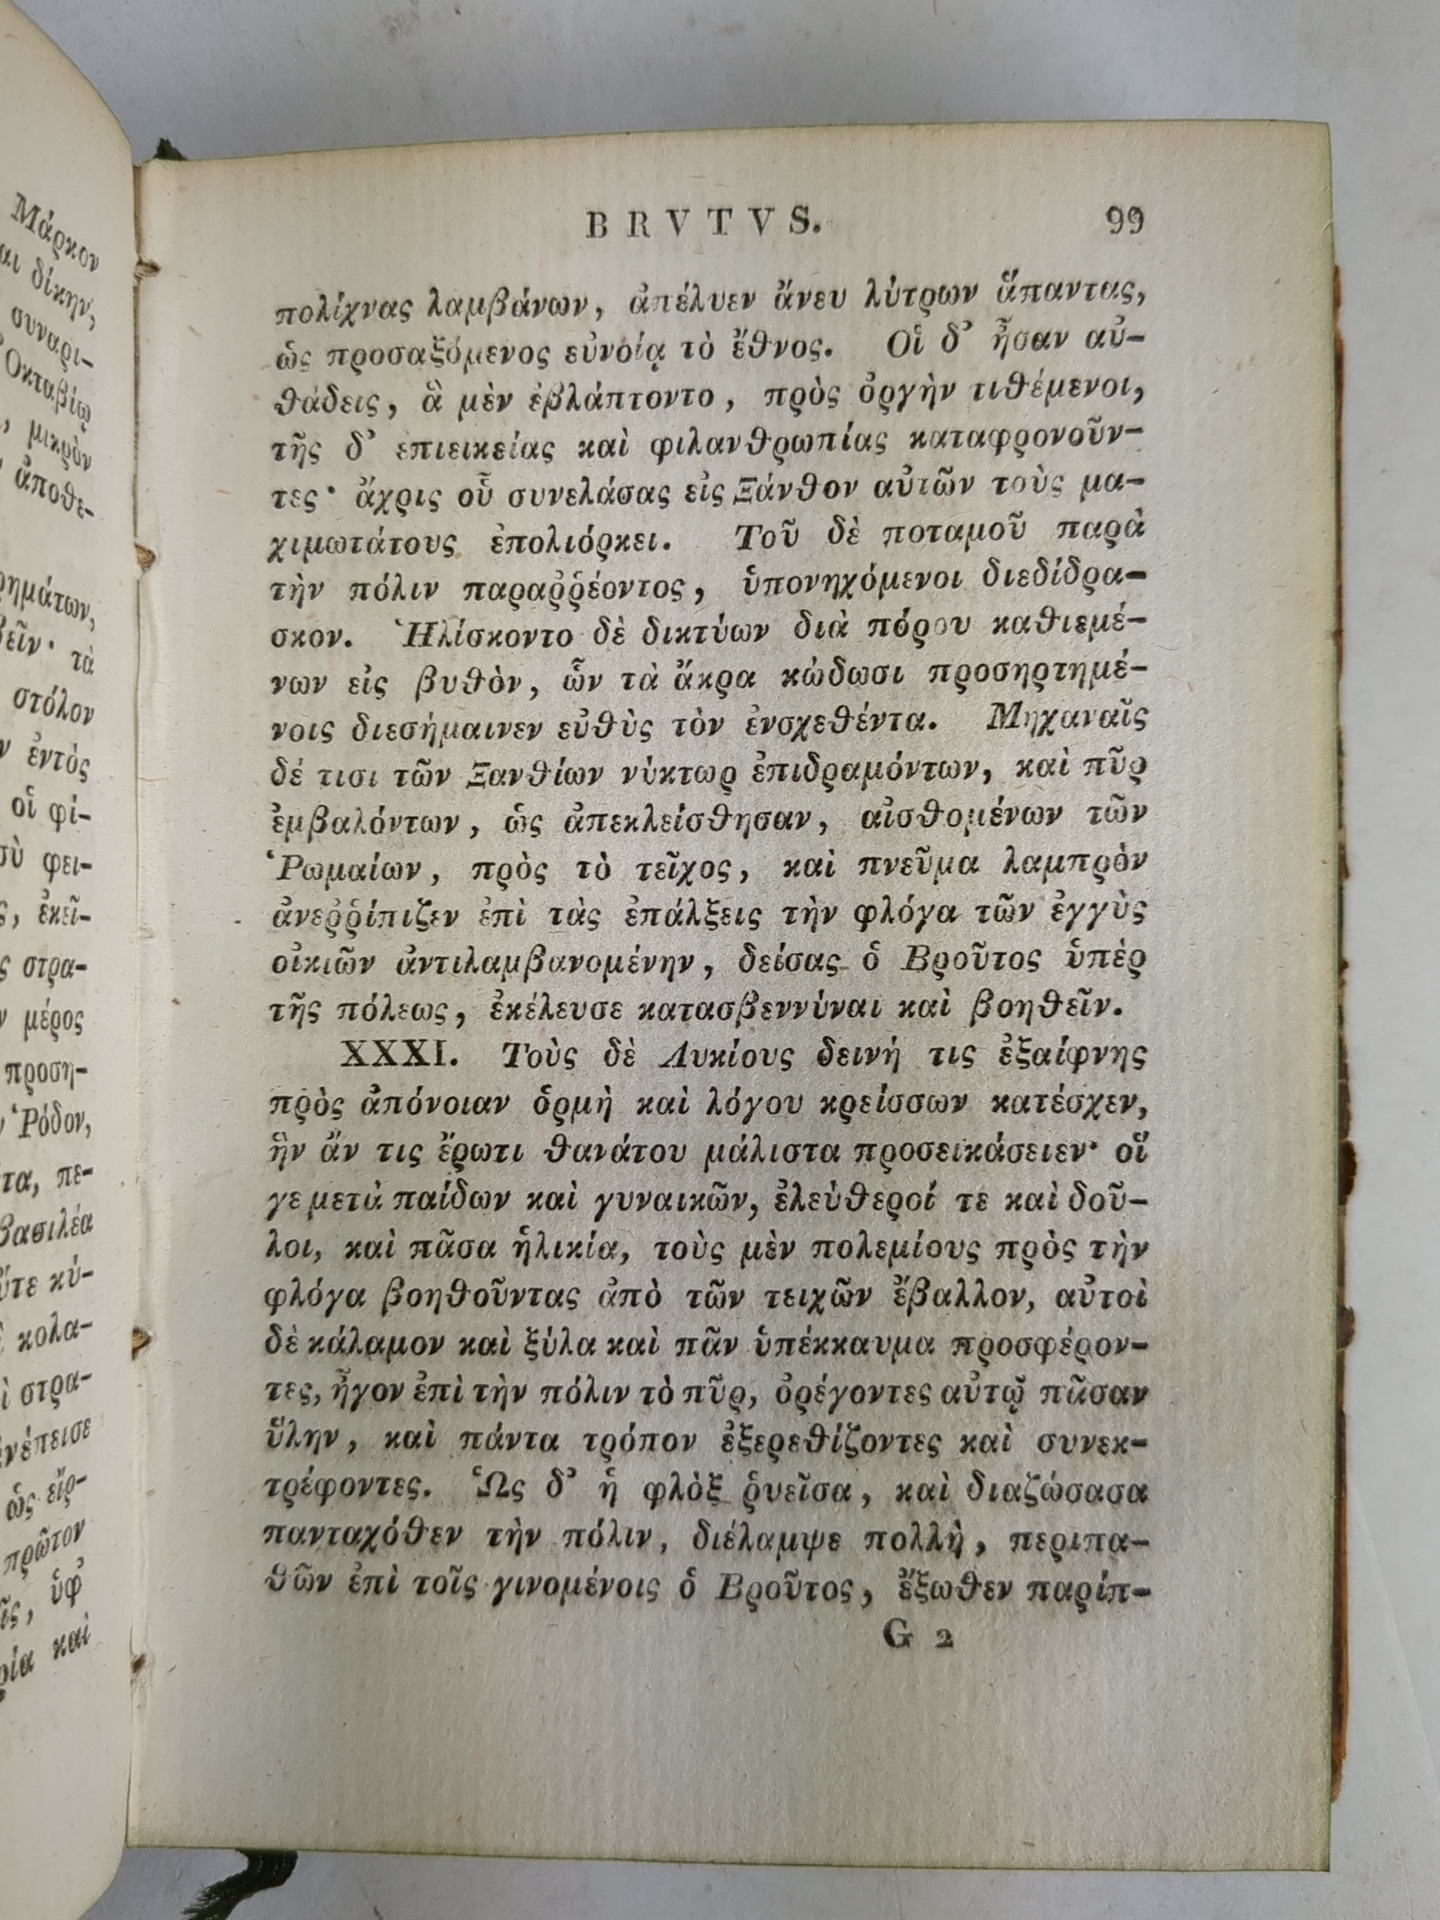 Μάρκον
αι δίκην,
συναρι-
Ὀκταβίῳ
, μικρὸν
ἀποθε-
ρημάτων,
βεῖν· τὰ
στόλον
ν ἐντὸς
οἱ φί-
σὺ φει-
ς, ἐκεῖ-
ς στρα-
ν μέρος
προση-
Ῥόδον,
τα, πε-
βασιλέα
ὔτε κύ-
κολα-
ὶ στρα-
ἀνέπεισε
ὡς εἴρ-
πρῶτον
ῖς, ὑφ
ρία καὶ
BRVTVS. 99
πολίχνας λαμβάνων, ἀπέλυεν ἄνευ λύτρων ἅπαντας,
ὡς προσαξόμενος εὐνοίᾳ τὸ ἔθνος. Οἱ δ᾽ ἦσαν αὐ-
θάδεις, ἃ μὲν ἐβλάπτοντο, πρὸς ὀργὴν τιθέμενοι,
τῆς δ᾽ ἐπιεικείας καὶ φιλανθρωπίας καταφρονοῦν-
τες· ἄχρις οὗ συνελάσας εἰς Ξάνθον αὐτῶν τοὺς μα-
χιμωτάτους ἐπολιόρκει. Τοῦ δὲ ποταμοῦ παρὰ
τὴν πόλιν παραῤῥέοντος, ὑπονηχόμενοι διεδίδρα-
σκον. Ἡλίσκοντο δὲ δικτύων διὰ πόρου καθιεμέ-
νων εἰς βυθὸν, ὧν τὰ ἄκρα κώδωσι προσηρτημέ-
νοις διεσήμαινεν εὐθὺς τὸν ἐνσχεθέντα. Μηχαναῖς
δέ τισι τῶν Ξανθίων νύκτωρ ἐπιδραμόντων, καὶ πῦρ
ἐμβαλόντων, ὡς ἀπεκλείσθησαν, αἰσθομένων τῶν
Ῥωμαίων, πρὸς τὸ τεῖχος, καὶ πνεῦμα λαμπρὸν
ἀνεῤῥίπιζεν ἐπὶ τὰς ἐπάλξεις τὴν φλόγα τῶν ἐγγὺς
οἰκιῶν ἀντιλαμβανομένην, δείσας ὁ Βροῦτος ὑπὲρ
τῆς πόλεως, ἐκέλευσε κατασβεννύναι καὶ βοηθεῖν.
XXXI. Τοὺς δὲ Λυκίους δεινή τις ἐξαίφνης
πρὸς ἀπόνοιαν ὁρμὴ καὶ λόγου κρείσσων κατέσχεν,
ἣν ἄν τις ἔρωτι θανάτου μάλιστα προσεικάσειεν· οἵ
γε μετὰ παίδων καὶ γυναικῶν, ἐλεύθεροί τε καὶ δοῦ-
λοι, καὶ πᾶσα ἡλικία, τοὺς μὲν πολεμίους πρὸς τὴν
φλόγα βοηθοῦντας ἀπὸ τῶν τειχῶν ἔβαλλον, αὐτοὶ
δὲ κάλαμον καὶ ξύλα καὶ πᾶν ὑπέκκαυμα προσφέρον-
τες, ἦγον ἐπὶ τὴν πόλιν τὸ πῦρ, ὀρέγοντες αὐτῷ πᾶσαν
ὕλην, καὶ πάντα τρόπον ἐξερεθίζοντες καὶ συνεκ-
τρέφοντες. Ὡς δ᾽ ἡ φλὸξ ῥυεῖσα, καὶ διαζώσασα
πανταχόθεν τὴν πόλιν, διέλαμψε πολλὴ, περιπα-
θῶν ἐπὶ τοῖς γινομένοις ὁ Βροῦτος, ἔξωθεν παρίπ-
G 2